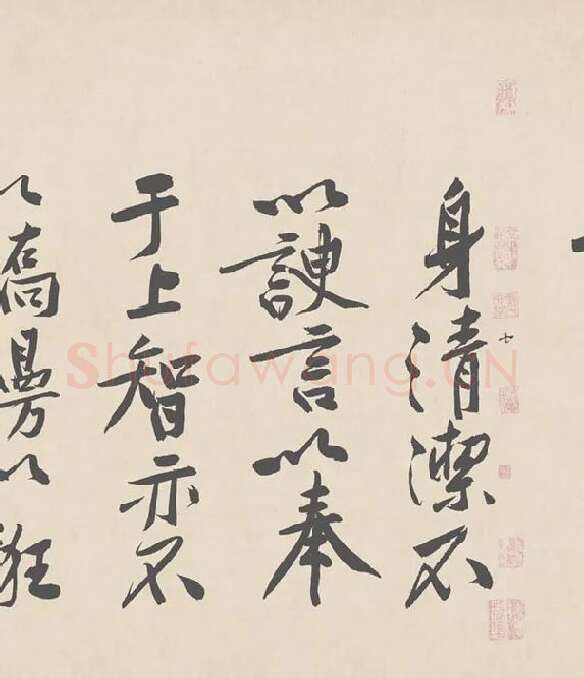 身清潔不
以諛言以奉
于上智亦不
以
以
Shufawang.CN